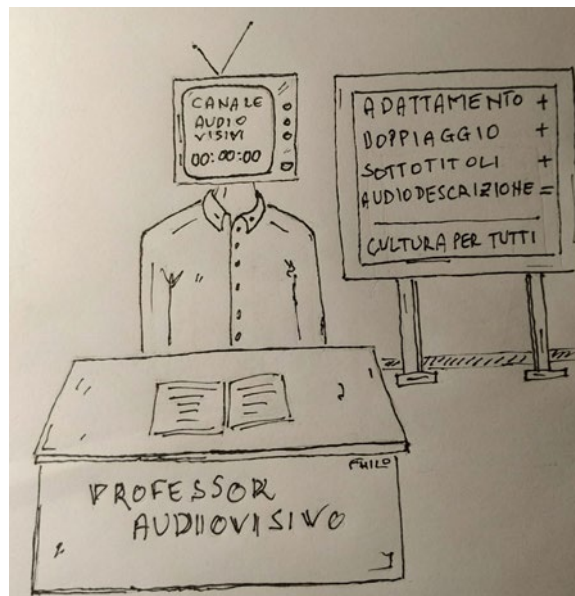 CANALE
AUDIO
VISIVI
00:00:00
ADATTAMENTO +
DOPPIAGGIO +
SOTTOTITOLI +
AUDIODESCRIZIONE =
CULTURA PER TUTTI
PROFESSOR
AUDIOVISIVO